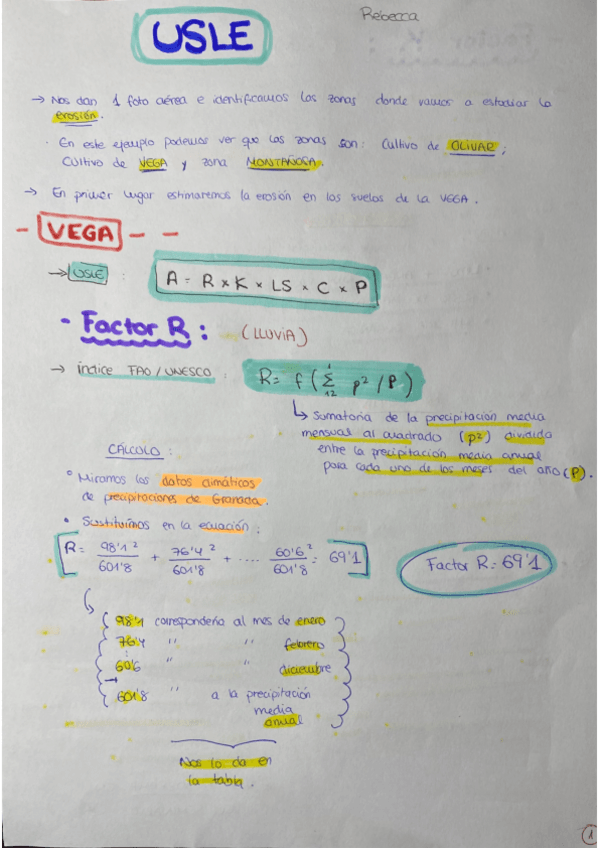 Rebecca
USLE
→ Nos dan 1 foto aérea e identificamos las zonas donde vamos a estudiar la
erosión.
· En este ejemplo podemos ver que las zonas son: Cultivo de OLIVAR;
Cultivo de VEGA y zona MONTAÑOSA.
→ En primer lugar estimaremos la erosión en los suelos de la VEGA.
- VEGA - -
→ USLE : A = R × K × LS × C × P
- Factor R : (LLUVIA)
→ índice FAO / UNESCO : R = f ( 1 Σ 12 p² / P )
↳ Sumatoria de la precipitación media
mensual al cuadrado (p²) dividida
entre la precipitación media anual
para cada uno de los meses del año (P).
CÁLCULO :
° Miramos los datos climáticos
de precipitaciones de Granada.
• Sustituimos en la ecuación :
R = 98'1² / 601'8 + 76'4² / 601'8 + .... 60'6² / 601'8 = 69'1
Factor R = 69'1
98'1 correspondería al mes de enero
76'4 " " febrero
:
60'6 " " diciembre
→
601'8 " a la precipitación
media
anual
Nos lo da en
la tabla.
1